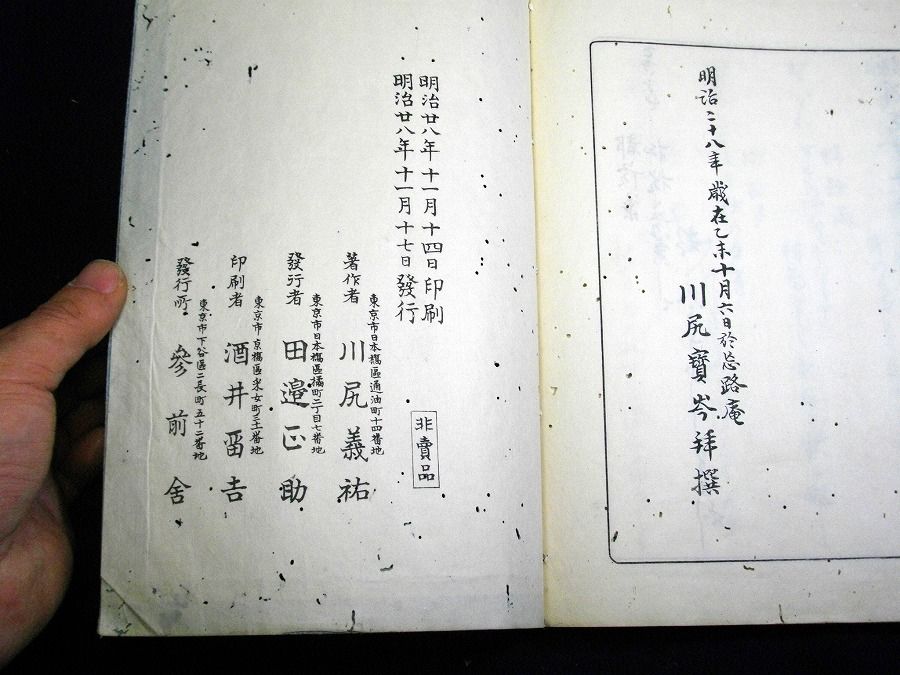 明治二十八年歳在乙未十月六日於忘路庵
川尻寶岑拜撰
明治廿八年十一月十四日印刷
明治廿八年十一月十七日發行
非賣品
東京市日本橋區通油町十四番地
著作者 川尻義祐
東京市日本橋區橘町二丁目七番地
發行者 田邉正助
東京市京橋區采女町三十一番地
印刷者 酒井畱吉
東京市下谷區二長町五十二番地
發行所 參前舍